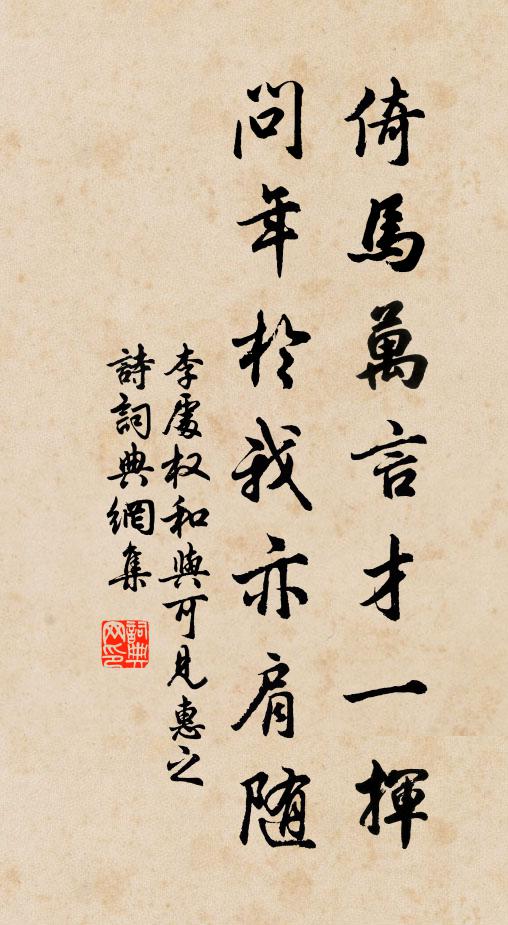 倚馬萬言才一揮
問年於我亦肩随
李處权和與可見惠之
詩詞典網集
詞典網印